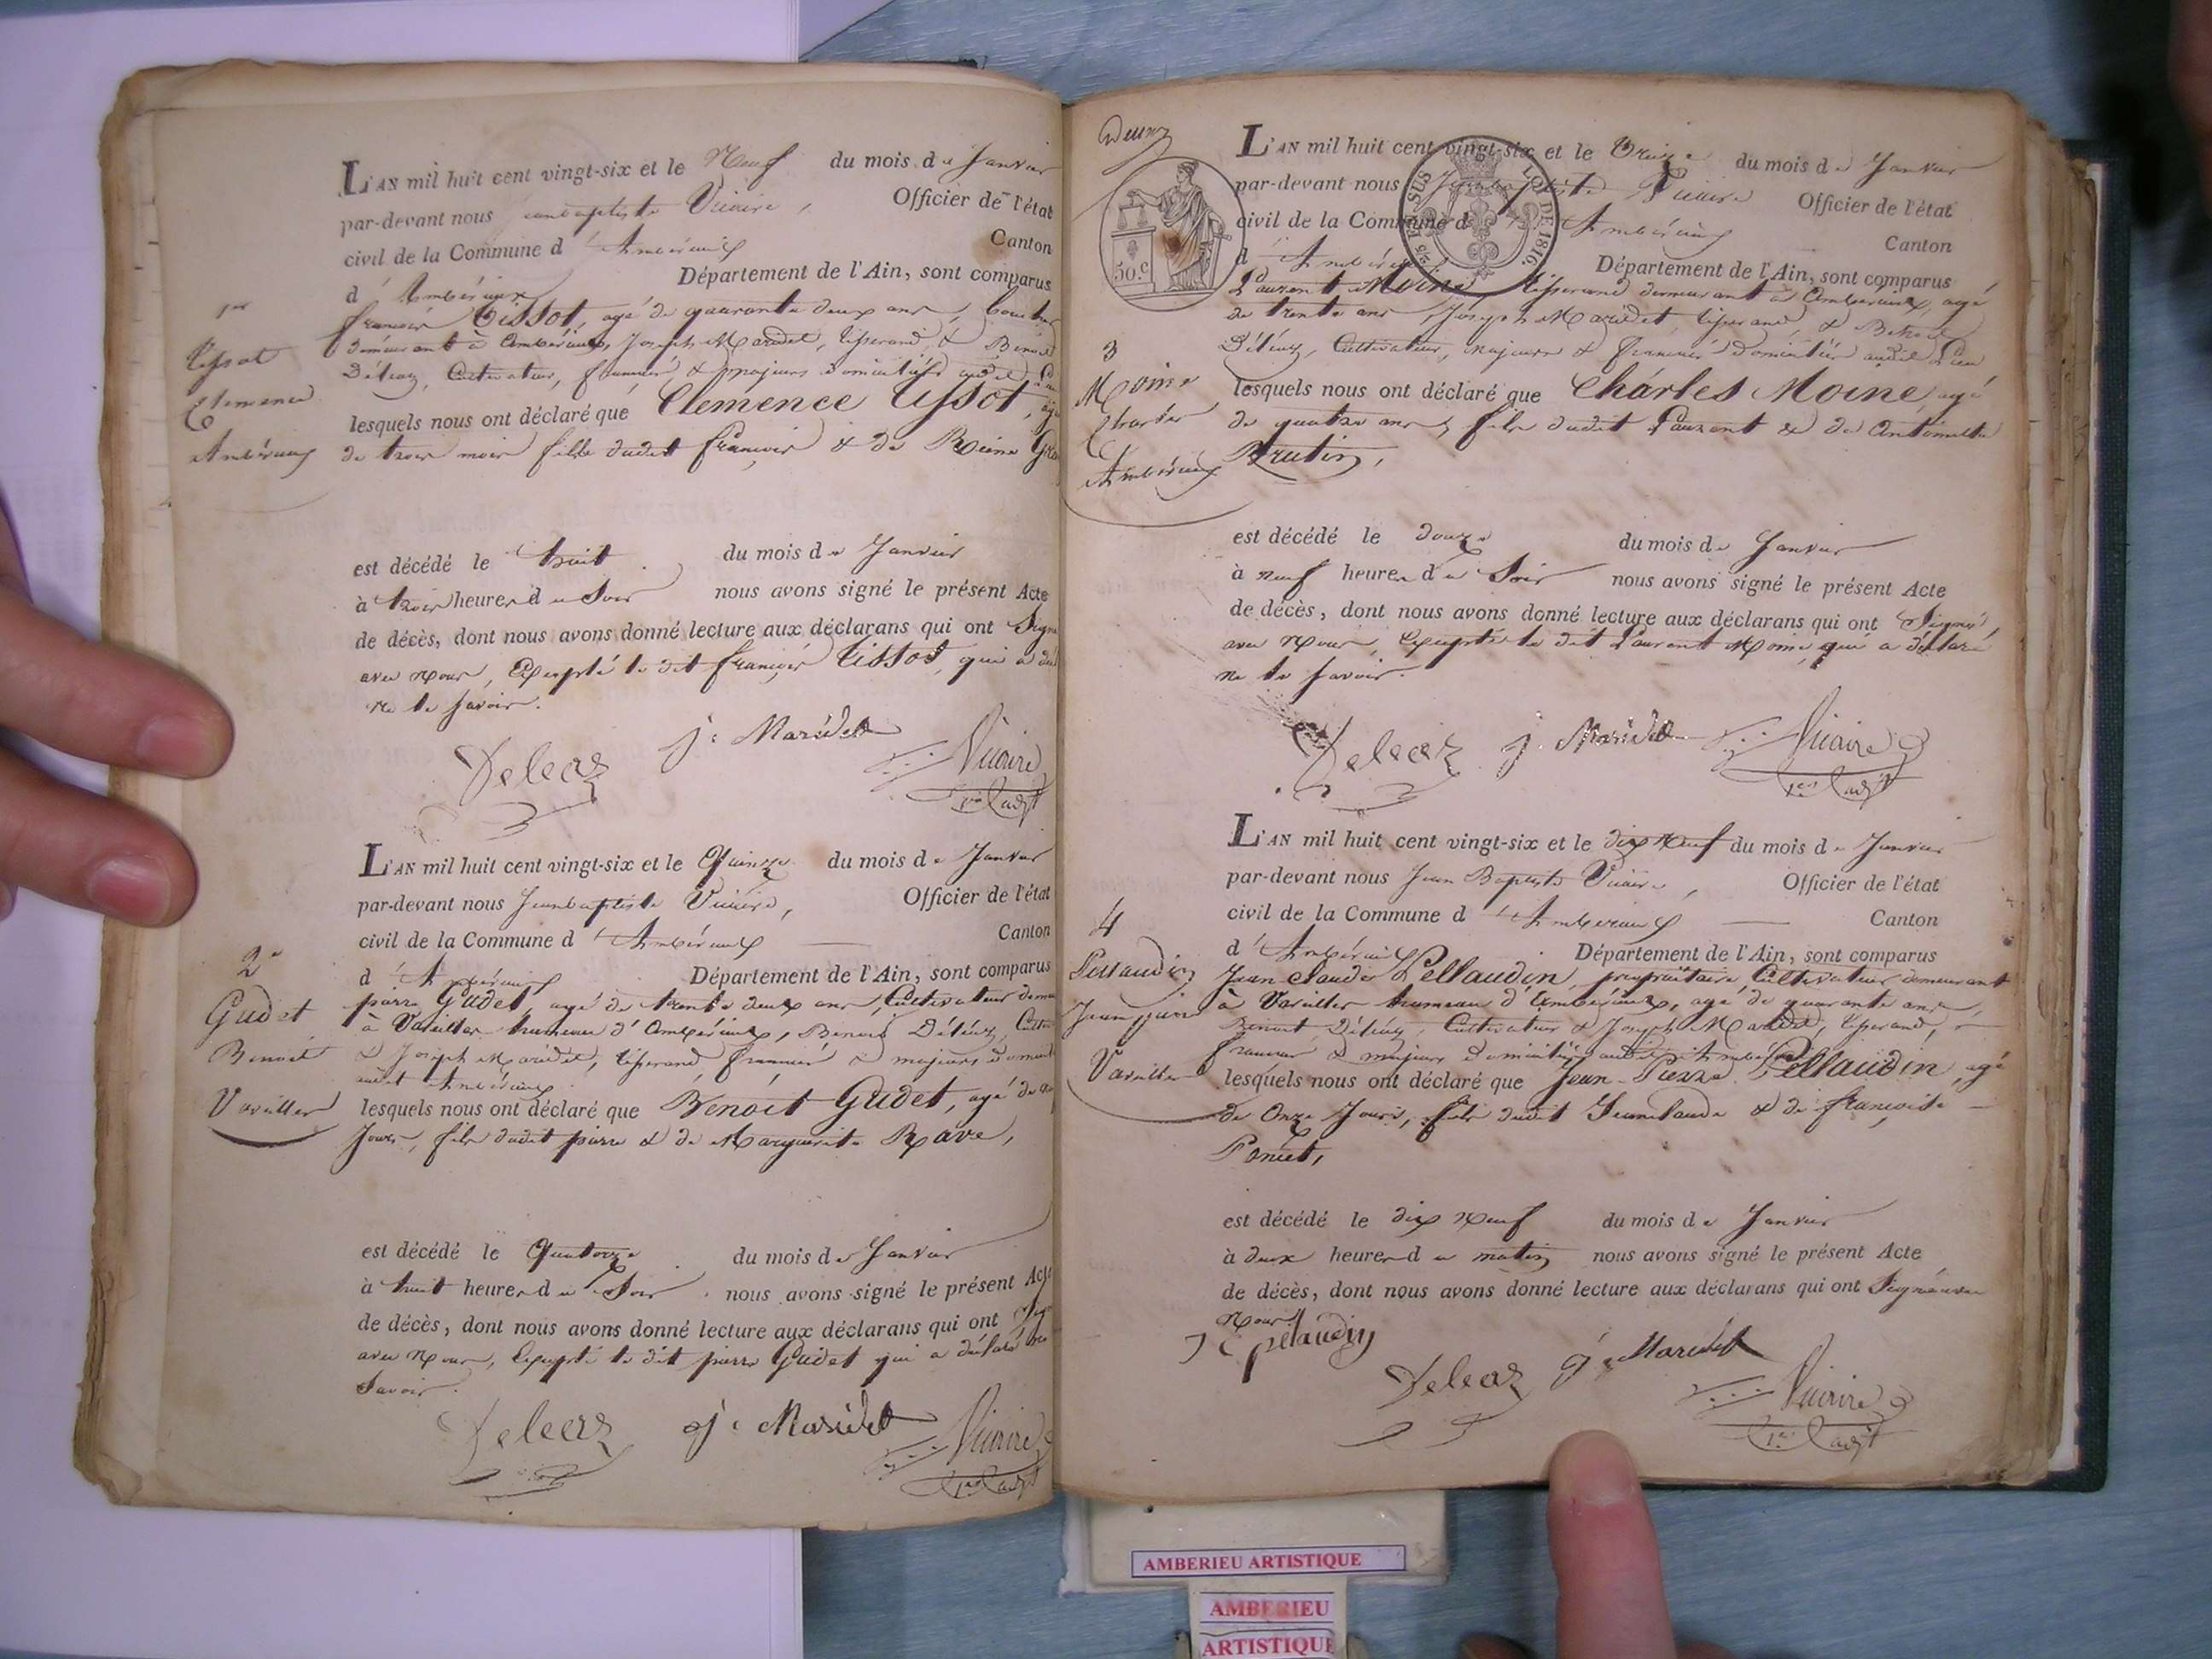 L'AN mil huit cent vingt-six et le Neuf du mois de Janvier
par-devant nous Jeanbaptiste Vicaire, Officier de l'état
civil de la Commune d'Ambérieux Canton
d'Ambérieux Département de l'Ain, sont comparus
1er
françois Tissot, agé de quarante deux ans,
demeurant à Ambérieux, Joseph Maridet, tisserand, & Benoit
Tissot
Déléaz, Cultivateur, françois & majeurs domiciliés audit
Clemence
lesquels nous ont déclaré que Clemence Tissot,
Ambérieux
de trois mois fille dudit françois & de Reine
est décédé le huit du mois de Janvier
à trois heures du Soir nous avons signé le présent Acte
de décès, dont nous avons donné lecture aux déclarans qui ont Signé
avec Nous, Excepté le dit françois Tissot, qui a
ne le savoir.
Deleaz j. Maridet Vicaire
1er adjt
L'AN mil huit cent vingt-six et le Quinze du mois de Janvier
par-devant nous Jeanbaptiste Vicaire, Officier de l'état
civil de la Commune d'Ambérieux Canton
d'Ambérieux Département de l'Ain, sont comparus
2e
pierre Gudet, agé de trente deux ans, Cultivateur
Gudet
à Vareilles hameau d'Ambérieux, Benoit Déléaz,
Benoit
& Joseph Maridet, tisserand, françois & majeurs
audit Ambérieux
Vareilles
lesquels nous ont déclaré que Benoit Gudet, agé de
Jours, fils dudit pierre & de Marguerite Rave,
est décédé le Quatorze du mois de Janvier
à huit heures du Soir nous avons signé le présent Acte
de décès, dont nous avons donné lecture aux déclarans qui ont
avec Nous, Excepté le dit pierre Gudet qui a déclaré ne
Savoir.
Deleaz j. Maridet Vicaire
1er adjt
Deux
50.c
LOI DE 1816.
L'AN mil huit cent vingt-six et le Treize du mois de Janvier
par-devant nous Jeanbaptiste Vicaire Officier de l'état
civil de la Commune d'Ambérieux Canton
d'Ambérieux Département de l'Ain, sont comparus
Laurent Moine tisserand demeurant à Ambérieux, agé
de trente ans, Joseph Maridet, tisserand, & Benoit
3
Déléaz, Cultivateur, majeurs & françois domiciliés audit Lieu
Moine
lesquels nous ont déclaré que Charles Moine, agé
Charles
de quatre ans, fils dudit Laurent & de Antoinette
Ambérieux
Brutin,
est décédé le douze du mois de Janvier
à neuf heures du Soir nous avons signé le présent Acte
de décès, dont nous avons donné lecture aux déclarans qui ont Signé,
avec Nous, Excepté le dit Laurent Moine, qui a déclaré
ne le savoir.
Deleaz j. Maridet Vicaire
1er adjt
L'AN mil huit cent vingt-six et le dix Neuf du mois de Janvier
par-devant nous Jean Baptiste Vicaire, Officier de l'état
civil de la Commune d'Ambérieux Canton
4
d'Ambérieux Département de l'Ain, sont comparus
Pellaudin
Jean claude Pellaudin, propriétaire Cultivateur demeurant
Jean pierre
à Vareilles hameau d'Ambérieux, agé de quarante ans,
Benoit Déléaz, Cultivateur & Joseph Maridet, tisserand,
françois & majeurs domiciliés audit Ambérieux
Vareilles
lesquels nous ont déclaré que Jean-Pierre Pellaudin, agé
de Onze Jours, fils dudit Jeanclaude & de françoise
Poncet,
est décédé le dix Neuf du mois de Janvier
à deux heures du matin nous avons signé le présent Acte
de décès, dont nous avons donné lecture aux déclarans qui ont Signé avec
Nous.
J C pelaudin
Deleaz j. Maridet Vicaire
1er adjt
AMBERIEU ARTISTIQUE
AMBERIEU
ARTISTIQUE